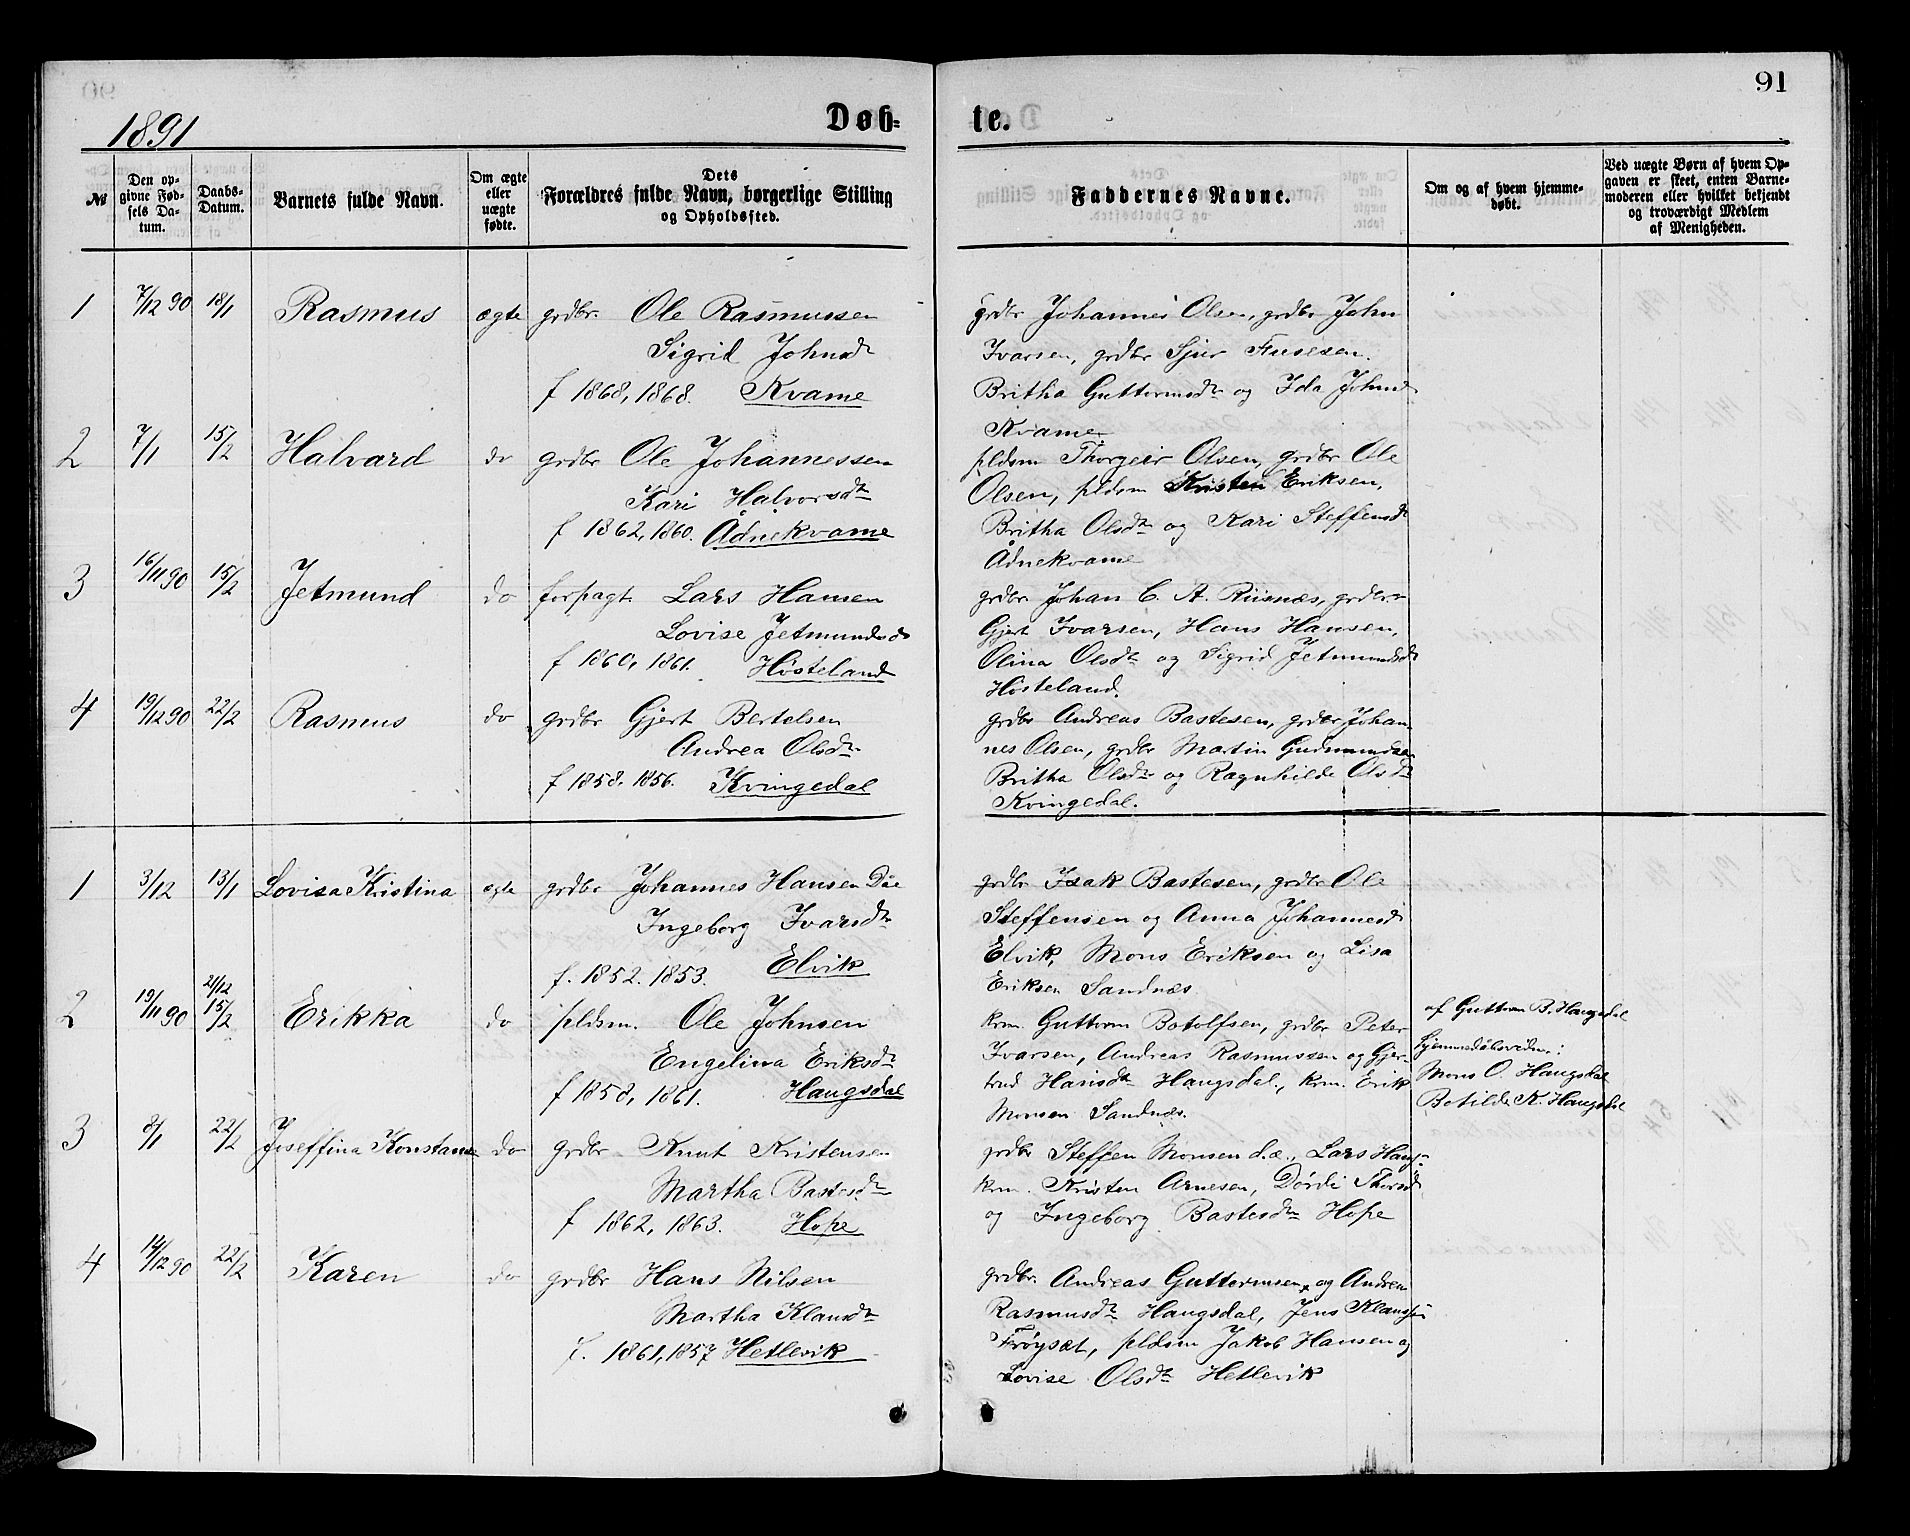 91
1891
Døb-
te.
№
Den op-
givne Fød-
sels Da-
tum.
Daabs-
Datum.
Barnets fulde Navn.
Om ægte
eller
uægte
fødte.
Dets
Forældres fulde Navn, borgerlige Stilling
og Opholdssted.
Faddernes Navne.
Om og af hvem hjemme-
døbt.
Ved uægte Børn af hvem Op-
gaven er skeet, enten Barne-
moderen eller hvilket bekjendt
og troværdigt Medlem
af Menigheden.
1 7/12 90 18/1 Rasmus ægte grdbr. Ole Rasmussen
Sigrid Johnsdt
f 1868, 1868. Kvame
grdbr Johannes Olsen, grdbr John
Ivarsen, grdbr Sjur
Britha Guttormsdt og Ida Johnsd
Kvame
2 7/1 15/2 Halvard do grdbr Ole Johannessen
Kari Halvorsdt
f 1862, 1860. Ådnekvame
pldsm Thorgeir Olsen, grdbr Ole
Olsen, pldsm Kristen Eriksen,
Britha Olsdt og Kari Steffensdt
Ådnekvame
3 16/11 90 15/2 Jetmund do forpagt. Lars Hansen
Lovise Jetmundsd
f 1860, 1861. Høsteland
grdbr Johan C. A. Riisnæs, grdbr
Gjert Ivarsen, Hans Hansen,
Olina Olsdt og Sigrid Jetmundsdt
Høsteland.
4 19/12 90 22/2 Rasmus do grdbr Gjert Bertelsen
Andrea Olsdt
f 1858, 1856. Kvingedal
grdbr Andreas Bastesen, grdbr Johan-
nes Olsen, grdbr Martin Gudmundsen
Britha Olsdt og Ragnhilde Olsdt
Kvingedal.
1 3/12 13/1 Lovisa Kristina ægte grdbr Johannes Hansen Dæ
Ingeborg Ivarsdt
f. 1852. 1853. Elvik
grdbr Isak Bastesen, grdbr Ole
Steffensen og Anna Johannesd
Elvik, Mons Eriksen og Lisa
Eriksen Sandnæs
2 19/11 90 21/12 15/2 Erikka do pldsm. Ole Johnsen
Engelina Eriksdt
f 1858, 1861. Haugsdal
krm. Guttorm Botolfsen, grdbr Peter
Ivarsen, Andreas Rasmussen og Gjer-
trud Hansdt Haugsdal, krm. Erik
Monsen Sandnæs.
af Guttorm B. Haugsdal
hjemmedøbsvidn.:
Mons O. Haugsdal
Botilde K. Haugsdal
3 8/1 22/2 Joseffina Konstanse do grdbr Knut Kristensen
Martha Bastesdt
f 1862, 1863. Hope
grdbr Steffen Monsen d.æ., Lars Haug-
krm. Kristen Arnesen, Dørdi Thorsdt
og Ingeborg Bastesdt Hope
4 14/12 90 22/2 Karen do grdbr Hans Nilsen
Martha Klausdt
f. 1861, 1857 Hetlevik
grdbr. Andreas Guttormsen og Andrea
Rasmusdt Haugsdal, Jens Klaussen
Frøyset, pldsm Jakob Hansen og
Lovise Olsdt Hetlevik